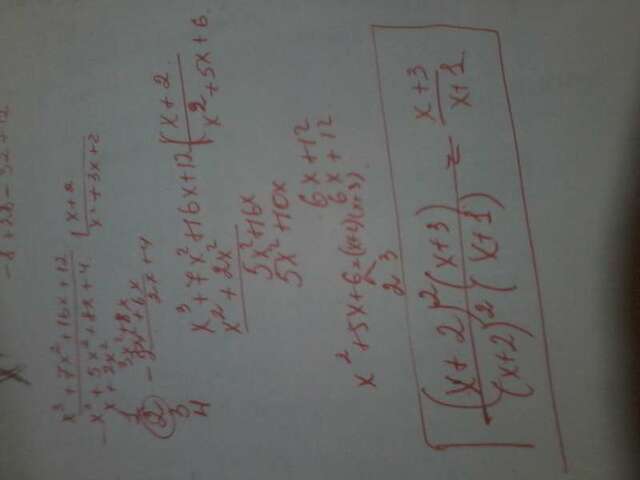 -8+28-32+12
x³ + 7x² + 16x + 12
x³ + 5x² + 8x + 4 | x+2
x² + 3x + 2
- x³ + 2x²
1 3x² + 8x
2 - 3x² + 6x
2x + 4
3
4
x³ + 7x² + 16x + 12 | x + 2
x² + 2x² x² + 5x + 6
5x² + 16x
5x² + 10x
6x + 12
6x + 12
x² + 5x + 6 = (x+2)(x+3)
2 3
(x + 2)² (x + 3) / (x + 2)² (x + 1) = x + 3 / x + 1